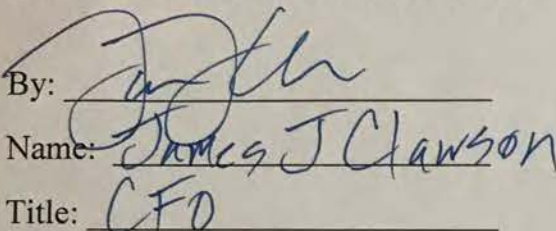 By:
Name: James J Clawson
Title: CFO